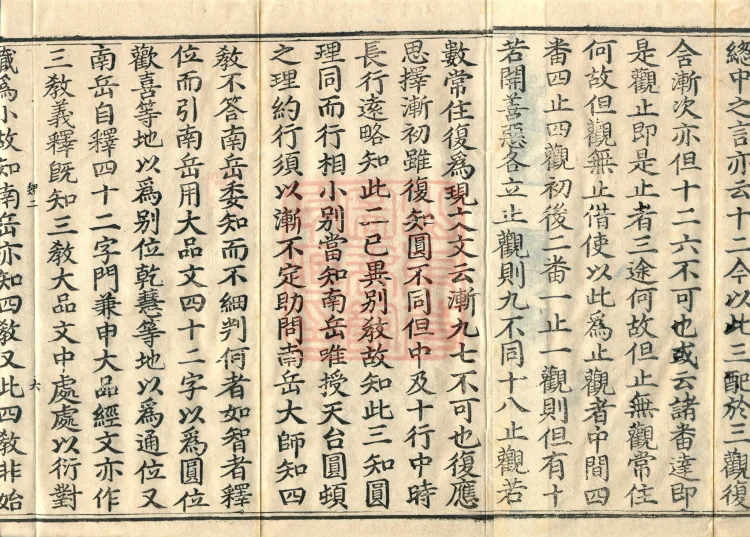 總中之言亦云十二今以此三配於三觀復
含漸次亦但十二六不可也或云諸番達即
是觀止即是止者三途何故但止無觀常住
何故但觀無止借使以此為止觀者中間四
番四止四觀初後二番一止一觀則但有十
若開善惡各立止觀則九不同十八止觀若
數常住復為現文文云漸九七不可也復應
思擇漸初雖復知圓不同但中及十行中時
長行遠略知此二已異別教故知此三知圓
理同而行相小別當知南岳唯授天台圓頓
之理約行須以漸不定助開南岳大師知四
教不答南岳委知而不細判何者如智者釋
位而引南岳用大品文四十二字以為圓位
歡喜等地以為別位乾慧等地以為通位又
南岳自釋四十二字門兼申大品經文亦作
三教義釋既知三教大品文中處處以衍對
六
藏為小故知南岳亦知四教又此四教非始